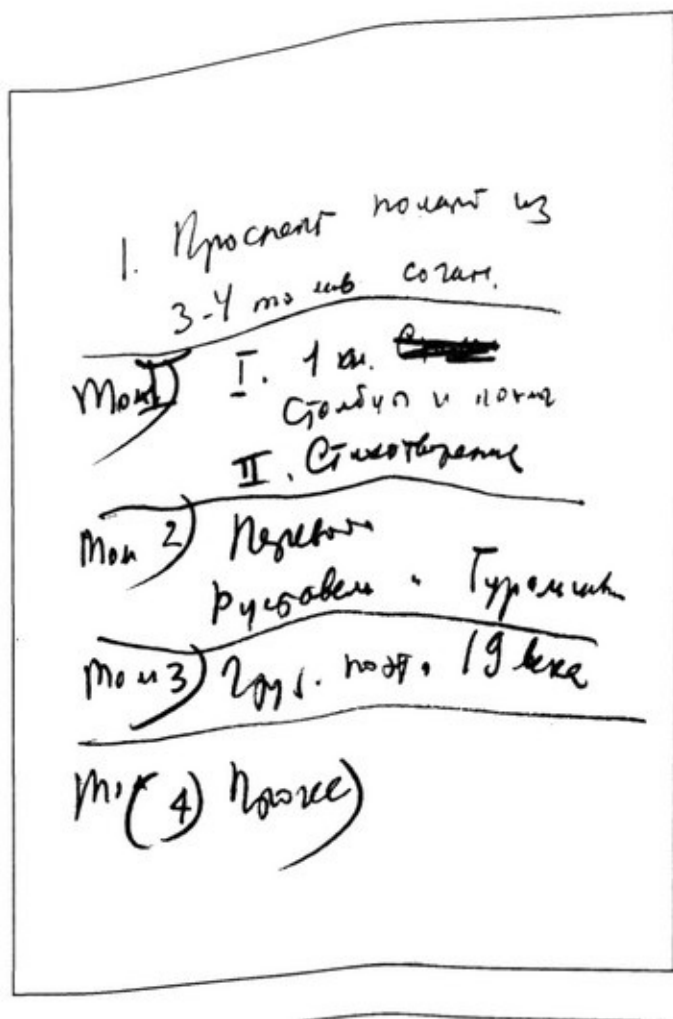 1. Проспект из
3-4 томов сочин.
Том 1) I. 1 кн.
Столбцы и поэмы
II. Стихотворения
Том 2) Переводы
Руставели. Гурамишв
Том 3) Груз. поэт. 19 века
Том (4) Прочее)